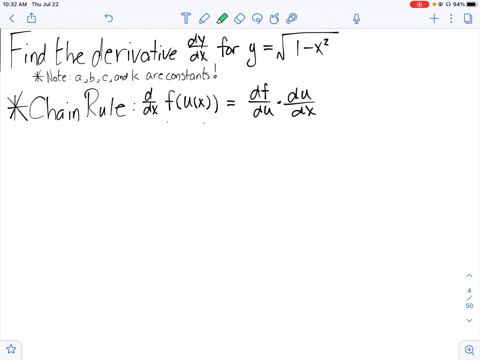 10:32 AM Thu Jul 22
94%
Find the derivative dy/dx for y = √(1-x²)
*Note: a, b, c, and k are constants!
*Chain Rule: d/dx f(u(x)) = df/du · du/dx
4
/
50